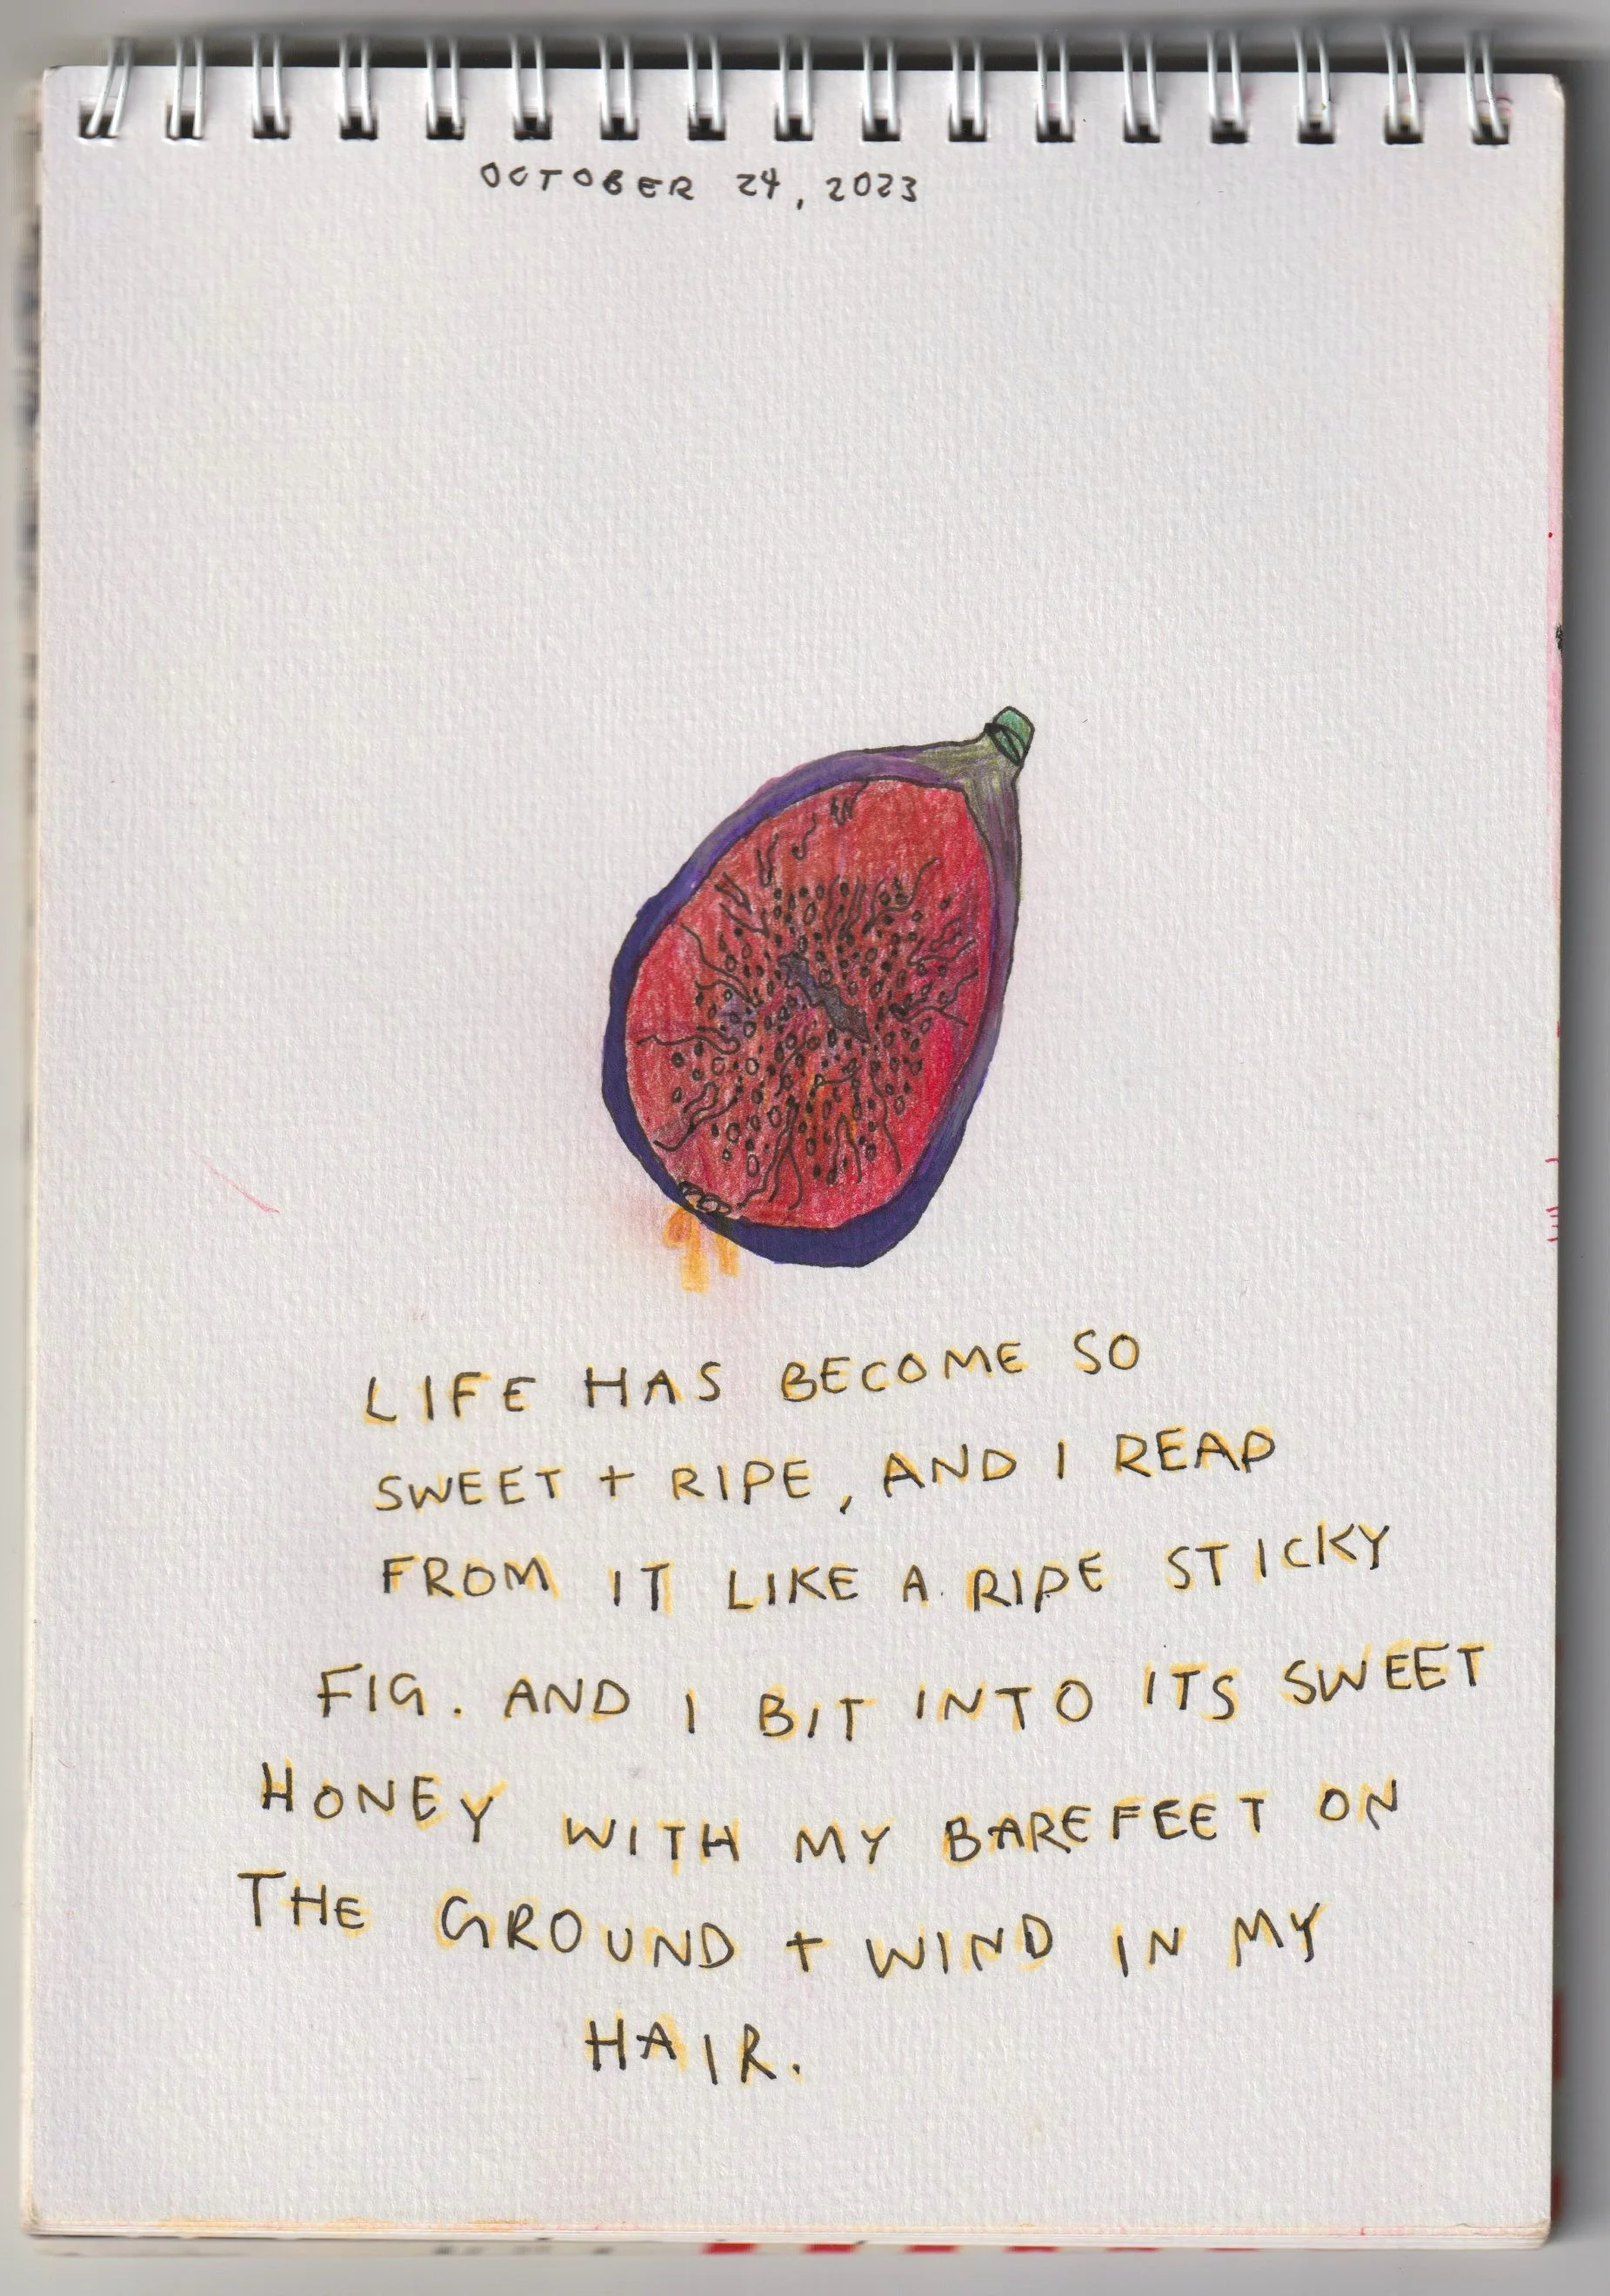 OCTOBER 24, 2023
LIFE HAS BECOME SO
SWEET + RIPE, AND I REAP
FROM IT LIKE A RIPE STICKY
FIG. AND I BIT INTO ITS SWEET
HONEY WITH MY BAREFEET ON
THE GROUND + WIND IN MY
HAIR.